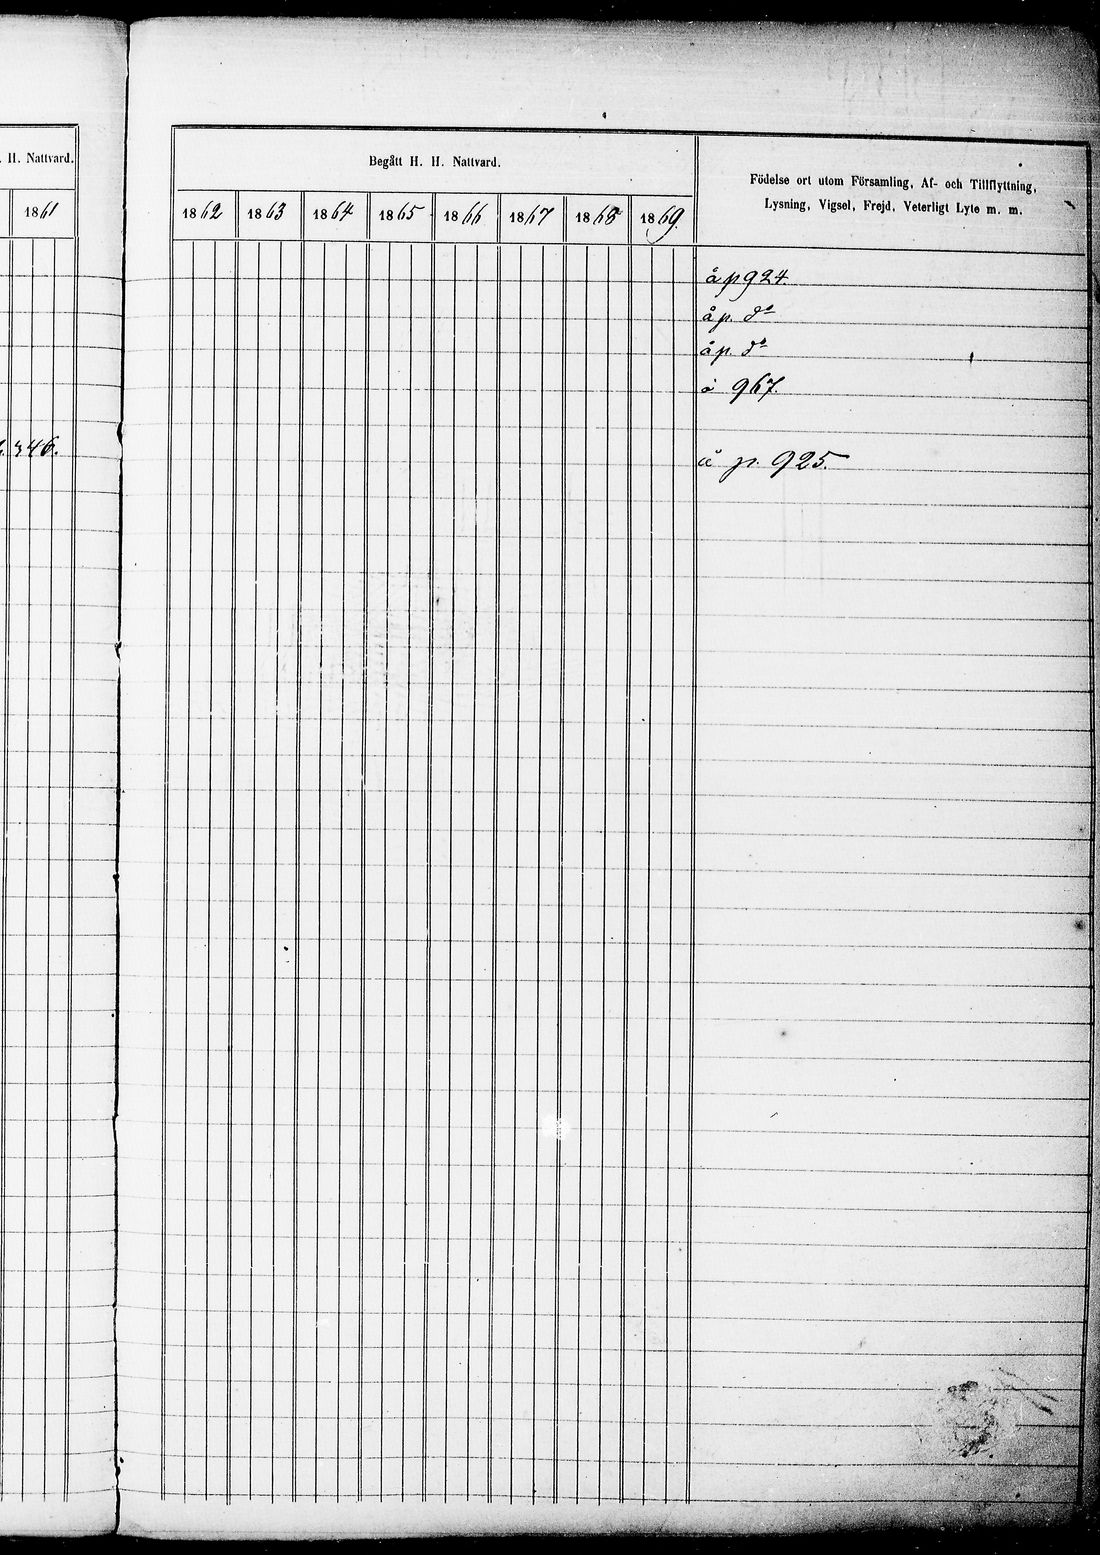 H. Nattvard.
1861
346.
Begått H. H. Nattvard.
1862 1863 1864 1865 1866 1867 1868 1869.
Födelse ort utom Församling, Af- och Tillflyttning,
Lysning, Vigsel, Frejd, Veterligt Lyte m. m.
å p 924.
å p. do
å p. do
å 967.
å p. 925.